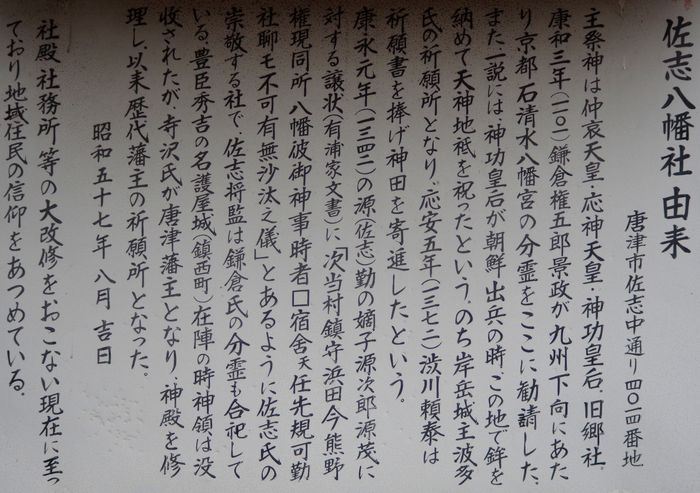 佐志八幡社 由来
唐津市佐志中通り四〇一四番地
主祭神は仲哀天皇・応神天皇・神功皇后、旧郷社、
康和三年(一一〇一)鎌倉権五郎景政が九州下向にあた
り京都石清水八幡宮の分霊をここに勧請した、
また一説には、神功皇后が朝鮮出兵の時、この地で鉾を
納めて天神地祗を祝ったという。のち岸岳城主波多
氏の祈願所となり、応安五年(一三七二)渋川頼泰は
祈願書を捧げ神田を寄進したという。
康永元年(一三四二)の源(佐志)勤の嫡子源次郎源茂に
対する譲状(有浦家文書)に「次当村鎮守浜田今熊野
権現同所八幡彼御神事時者□宿舎天任先規可勤
社聊モ不可有無沙汰之儀」とあるように佐志氏の
崇敬する社で、佐志将監は鎌倉氏の分霊も合祀して
いる、豊臣秀吉の名護屋城(鎮西町)在陣の時神領は没
收されたが、寺沢氏が唐津藩主となり、神殿を修
理し、以来歴代藩主の祈願所となった。
昭和五十七年 八月 吉日
社殿社務所等の大改修をおこない現在に至っ
ており地域住民の信仰をあつめている。